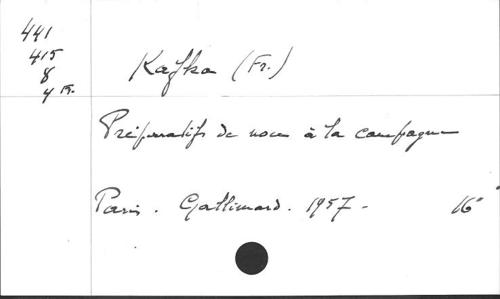 441
415
8
4 R.
Kafka (Fr.)
Préparatifs de noce à la campagne
Paris. Gallimard. 1957 - 16°